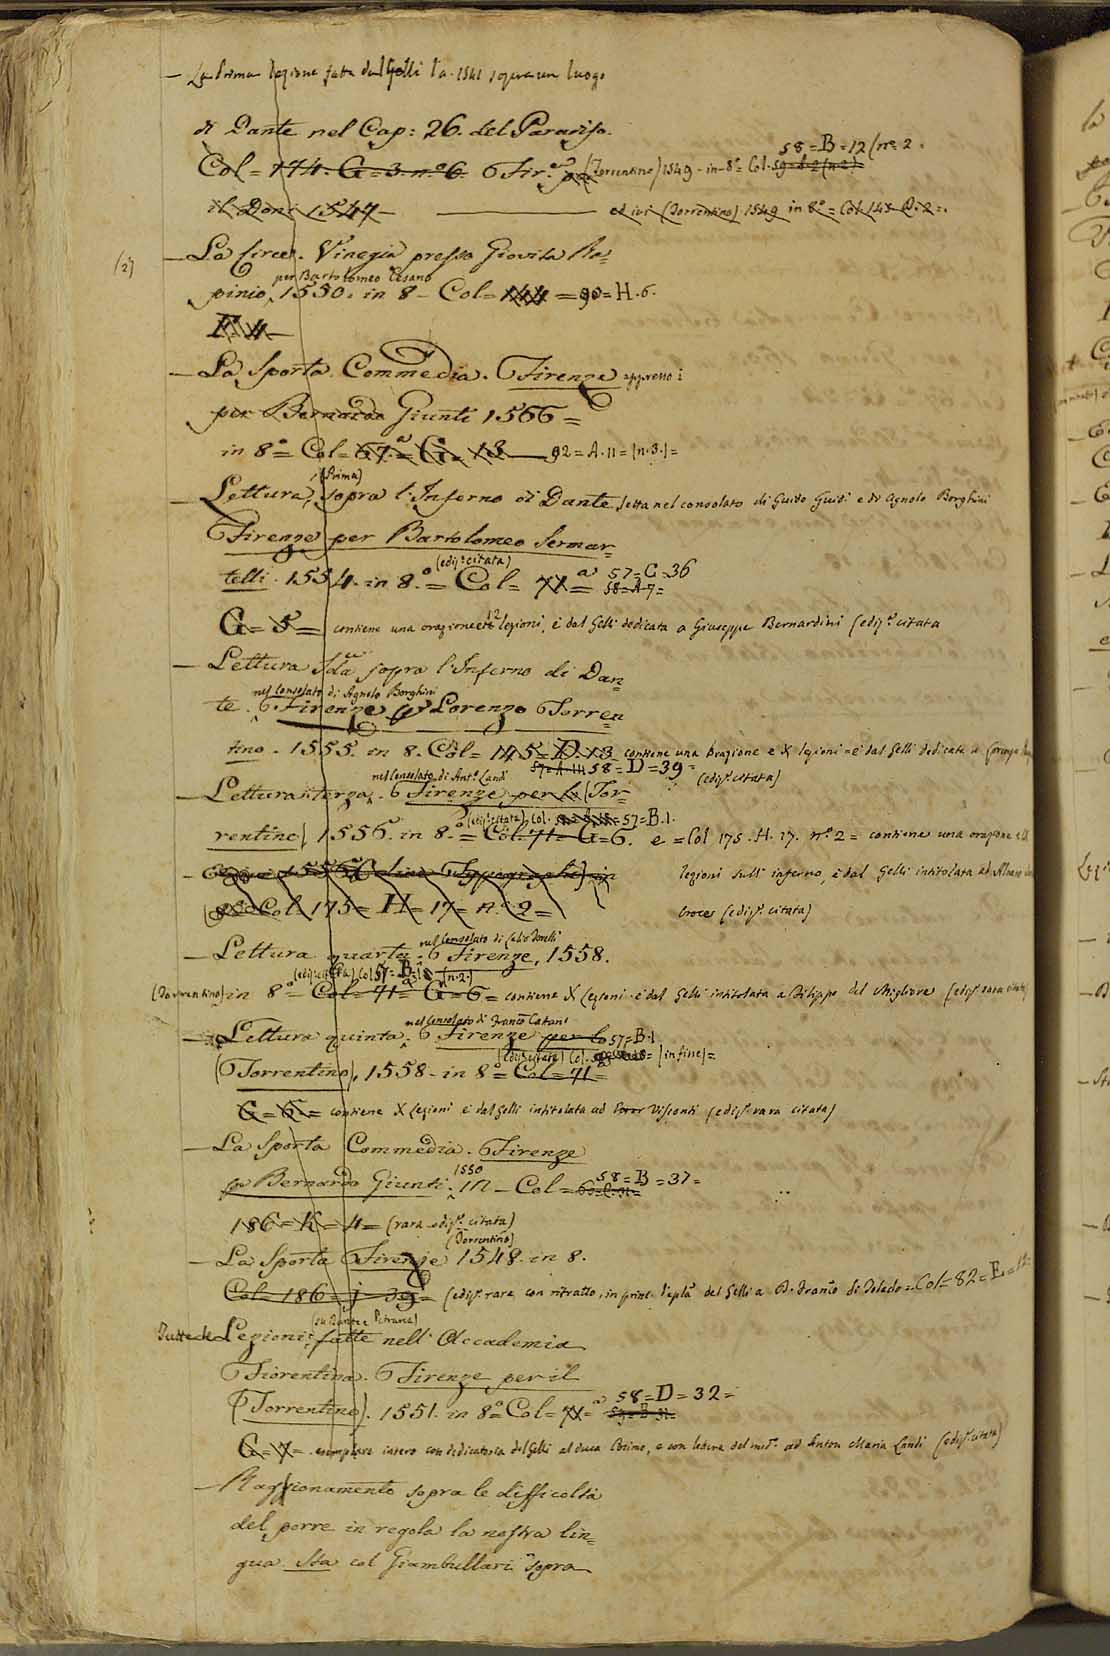 — La Prima lezione fatta dal Gelli l'a. 1541 sopra un luogo
di Dante nel Cap: 26. del Paradiso.
58=B=12 (n.º 2.
Col= 174. G=3. n.º 6. Fir.
(Torrentino) 1549. in-8º= Col.
il Doni 1547— ——— ed ivi (Torrentino) 1549 in 8º = Col. 143
(2)
— La Circe. Vinegia presso Giovita Ra=
per Bartolomeo Cesano
pinio, 1550. in 8— Col= 144 =90=H.6.
F. 4—
— La Sporta Commedia. Firenze appresso i
per Bernardo Giunti 1566=
in 8º= Col= 67.ª= G= 13 — 92=A.11=(n.3.)=
(Prima)
— Lettura, sopra l'Inferno di Dante, letta nel consolato di Guido Guidi e di Agnolo Borghini
Firenze per Bartolomeo Sermar=
(ediz.e citata)
telli. 1554. in 8.º= Col= 71ª= 57=C=36
58=A=7=
G= 5= contiene una orazione e 12 lezioni, è dal Gelli dedicata a Giuseppe Bernardini (ediz.e citata
— Lettura 2da sopra l'Inferno di Dan=
nel Consolato di Agnolo Borghini
te. Firenze p Lorenzo Torren=
tino. 1555. in 8. Col= 145=D.13 contiene una Orazione e X lezioni = è dal Gelli dedicata a
57=A.14 58=D=39= (ediz.e citata)
nel Consolato di Ant.º Landi
— Lettura terza, Firenze per lo (Tor=
(ediz.e citata) Col. =57=B.1.
rentino) 1556. in 8.º= Col. 71= G=6. e =Col 175. H. 17. n.º 2= contiene una orazione e
legioni sull'inferno, è dal Gelli intitolata ad
Col. 175= H= 17= n.º 2=
(ediz.e citata)
nel Consolato di Lelio Torelli
— Lettura quarta. Firenze, 1558.
(ediz.e citata) Col 57=B (n.2.)
(Torrentino) in 8º= Col= 71= G=6= contiene X Lezioni è dal Gelli intitolata a Filippo del Migliore (ediz.e rara citata)
nel Consolato di Franco Catani
— Lettura quinta. Firenze per lo 57=B.1
(ediz.e citata) Col. =(in fine)=
(Torrentino), 1558. in 8º= Col= 71=
G= 6= contiene X Lezioni è dal Gelli intitolata ad Visconti (ediz.e rara citata)
— La Sporta Commedia. Firenze
1550 58=B=37=
p Bernardo Giunti. in— Col=
186=K=4= (rara ediz.e citata)
(Torrentino)
— La Sporta Firenze 1548. in 8.
Col= 186= j=39= (ediz.e rara con ritratto, in princ. l'epla del Gelli a D. Franco di Toledo=Col=82=E=
(su Dante e Petrarca)
Tutte le Lezioni fatte nell'Accademia
Fiorentina. Firenze per il
58=D=32=
(Torrentino). 1551. in 8º= Col= 71=
G= 7= esemplare intero con dedicatoria del Gelli al duca Cosimo, e con lettera del med.º ad Anton Maria Landi (ediz.e citata)
— Ragionamento sopra le difficoltà
del porre in regola la nostra lin=
gua. Sta col Giambullari sopra